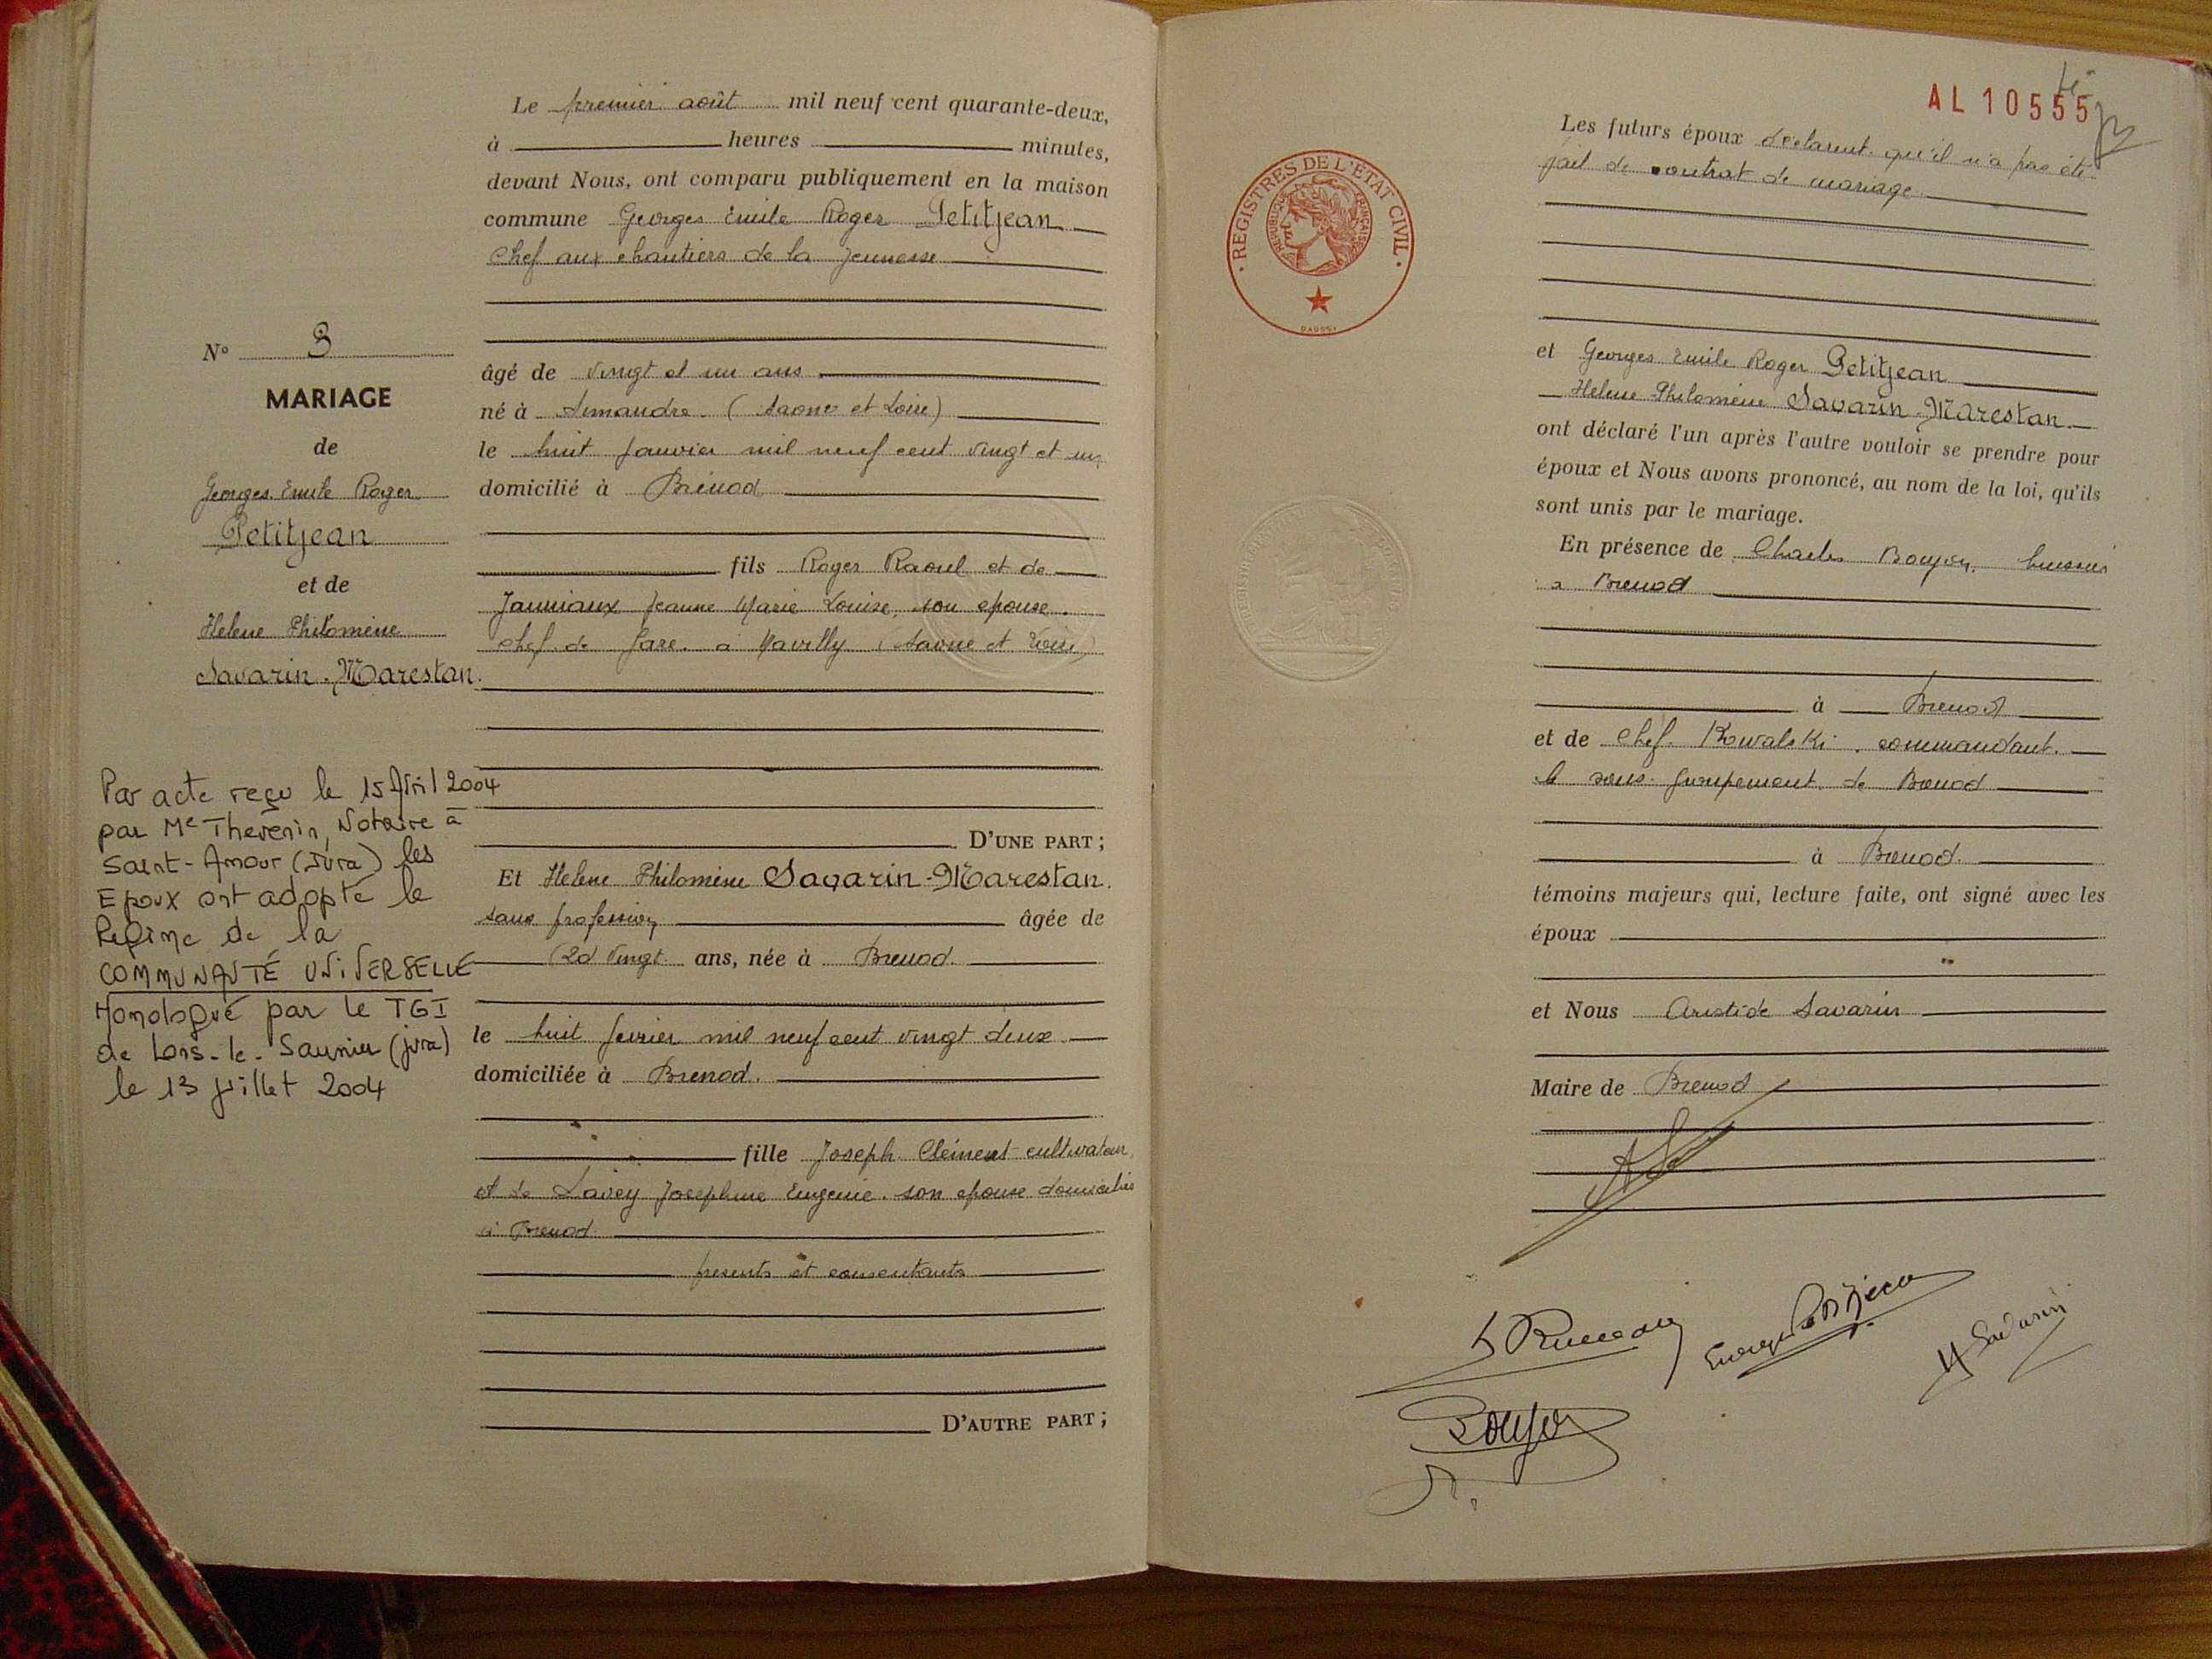 Le premier août mil neuf cent quarante-deux,
à heures minutes,
devant Nous, ont comparu publiquement en la maison
commune Georges Emile Roger Petitjean
chef aux chantiers de la jeunesse
âgé de vingt et un ans
né à Simandre. (Saone et Loire)
le huit janvier mil neuf cent vingt et un
domicilié à Brénod
fils Roger Raoul et de
Jeanne Marie Louise, son epouse.
chef de gare. a (Saone et Loire)
D'UNE PART ;
Et Helene Philomène Savarin-Marestan.
sans profession âgée de
(20) vingt ans, née à Brenod.
le huit fevrier mil neuf cent vingt deux.
domiciliée à Brenod.
fille Joseph Clément cultivateur,
et de Savey Josephine Eugenie. son epouse domiciliés
à Brenod
presents et consentants
D'AUTRE PART ;
N° 3
MARIAGE
de
Georges Emile Roger
Petitjean
et de
Helene Philomène
Savarin-Marestan.
Par acte reçu le 15 Avril 2004
par Me Thevenin, Notaire à
Saint-Amour (Jura) les
Epoux ont adopté le
Régime de la
COMMUNAUTÉ UNIVERSELLE
Homologué par le TGI
de Lons-le-Saunier (jura)
le 13 juillet 2004
REGISTRES DE L'ETAT CIVIL
REPUBLIQUE FRANÇAISE
AL 10555
Les futurs époux déclarent qu'il n'a pas été
fait de contrat de mariage.
et Georges Emile Roger Petitjean
Helene Philomène Savarin-Marestan.
ont déclaré l'un après l'autre vouloir se prendre pour
époux et Nous avons prononcé, au nom de la loi, qu'ils
sont unis par le mariage.
En présence de Charles Boujon, huissier
a Brenod
à Brenod
et de Chef Kowalski. commandant.
le sous-groupement de Brenod
à Brenod.
témoins majeurs qui, lecture faite, ont signé avec les
époux
et Nous Aristide Savarin
Maire de Brenod
H Savarin
Boujon